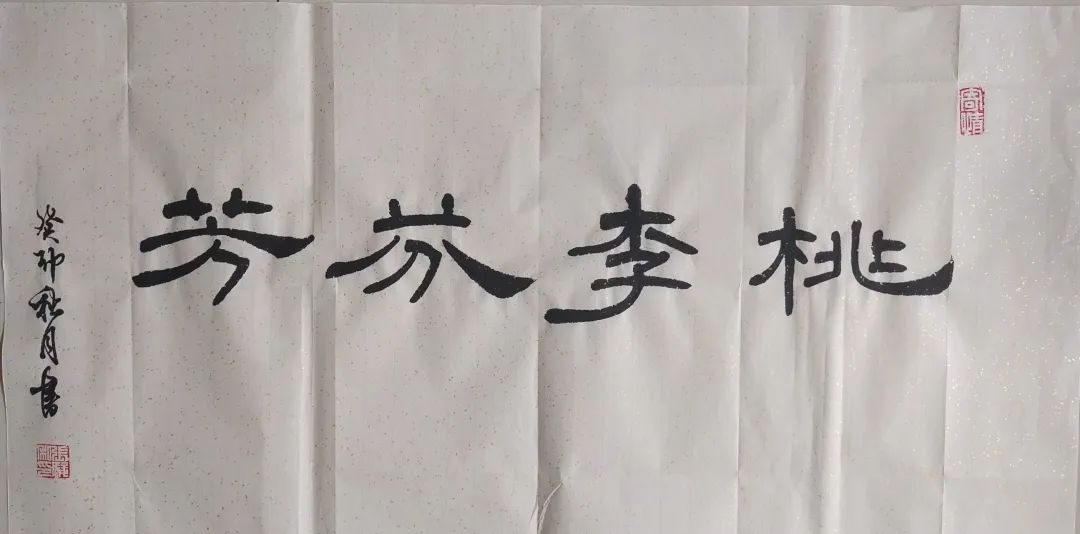 桃李芬芳
癸卯秋月书